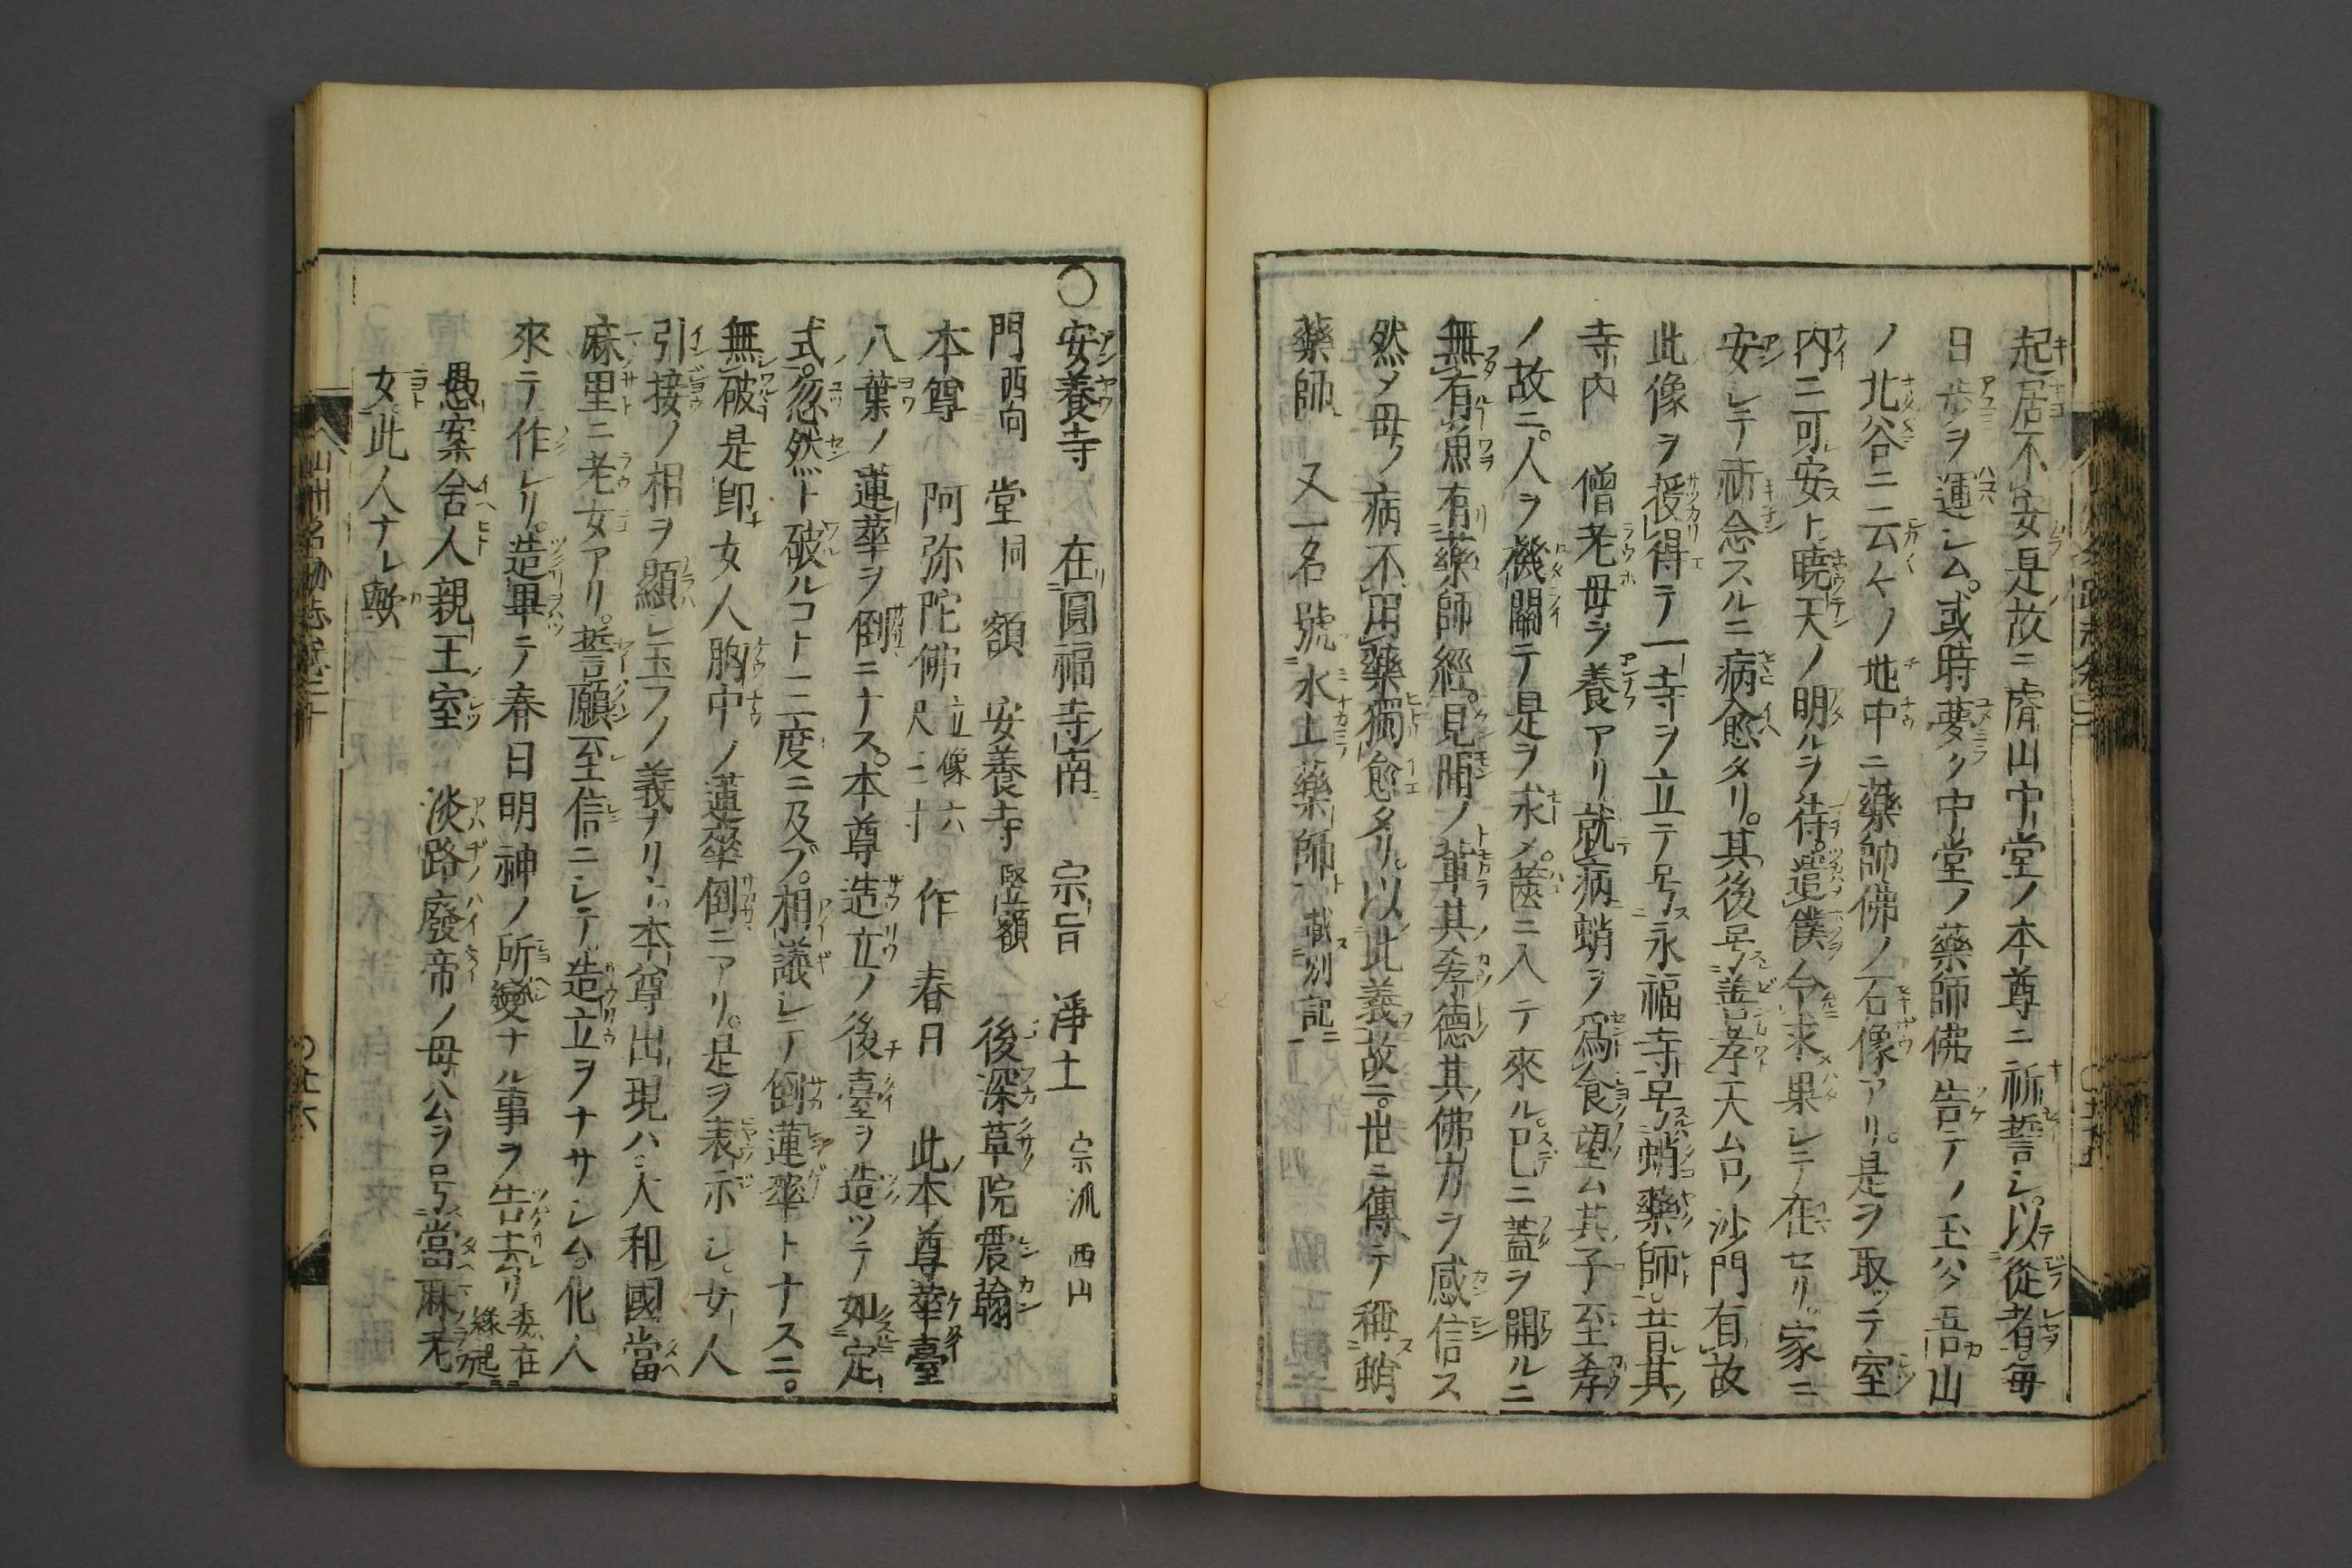 起居不安是故ニ膚山中堂ノ本尊ニ祈誓シ。以從者。每
日歩ヲ運シム。或時夢ク中堂ノ藥師佛告テノ玉ハク吾山
ノ北谷ニ云々ノ地中ニ藥師佛ノ石像アリ。是ヲ取ッテ室
内ニ可安ト。曉天ノ明ルヲ待。遣僕令求果シテ在セリ。家ニ
安シテ祈念スルニ病愈タリ。其後号善孝天台ノ沙門有故
此像ヲ授得テ一寺ヲ立テ号永福寺号蛸藥師。昔其
寺内 僧老母ヲ養アリ就病蛸ヲ爲食望ム其子至孝
ノ故ニ。人ヲ機關テ是ヲ求メ。篋ニ入テ來ル。巳ニ蓋ヲ開ルニ
無有魚有藥師經。見聞ノ輩其孝德其佛力ヲ感信ス
然メ母ノ病不用藥獨愈タリ。以此義故ニ。世ニ傳テ稱蛸
藥師 又一名號水上藥師 載別記
○安養寺 在圓福寺南 宗旨 淨土 宗派 西山
門 西向 堂 同 額 安養寺 竪額 後深草院震翰
本尊 阿弥陀佛 立像六尺二寸 作 春日 此本尊華臺
八葉ノ蓮華ヲ倒ニナス。本尊造立ノ後臺ヲ造ツテ如定
式。忽然ト破ルコト三度ニ及ブ。相議シテ倒蓮華トナスニ。
無破是即女人胸中ノ蓮華倒ニアリ。是ヲ表示シ。女人
引接ノ相ヲ顯シ玉フノ義ナリト。本尊出現ハ大和國當
麻里ニ老女アリ。誓願至信ニシテ造立ヲナサシム。化人
來テ作レリ。造畢テ春日明神ノ所變ナル事ヲ告去リ 委在緣起
愚案舍人親王室 淡路廢帝ノ母公ヲ号當麻老
女此人ナレ歟